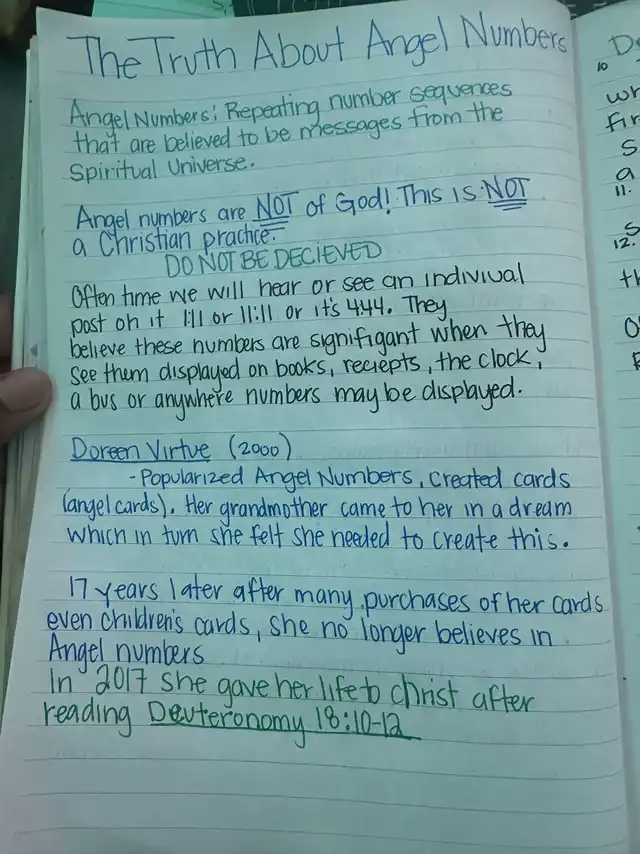 The Truth About Angel Numbers
Angel Numbers: Repeating number sequences
that are believed to be messages from the
Spiritual Universe.
Angel numbers are NOT of God! This is NOT
a Christian practice.
DO NOT BE DECIEVED
Often time we will hear or see an indiviual
post oh it 1:11 or 11:11 or it's 4:44. They
believe these numbers are signifigant when they
see them displayed on books, reciepts, the clock,
a bus or anywhere numbers may be displayed.
Doreen Virtue (2000)
- Popularized Angel Numbers, created cards
(angel cards). Her grandmother came to her in a dream
which in turn she felt she needed to create this.
17 years later after many purchases of her cards
even children's cards, she no longer believes in
Angel numbers
In 2017 she gave her life to christ after
reading Deuteronomy 18:10-12
10
11.
12.